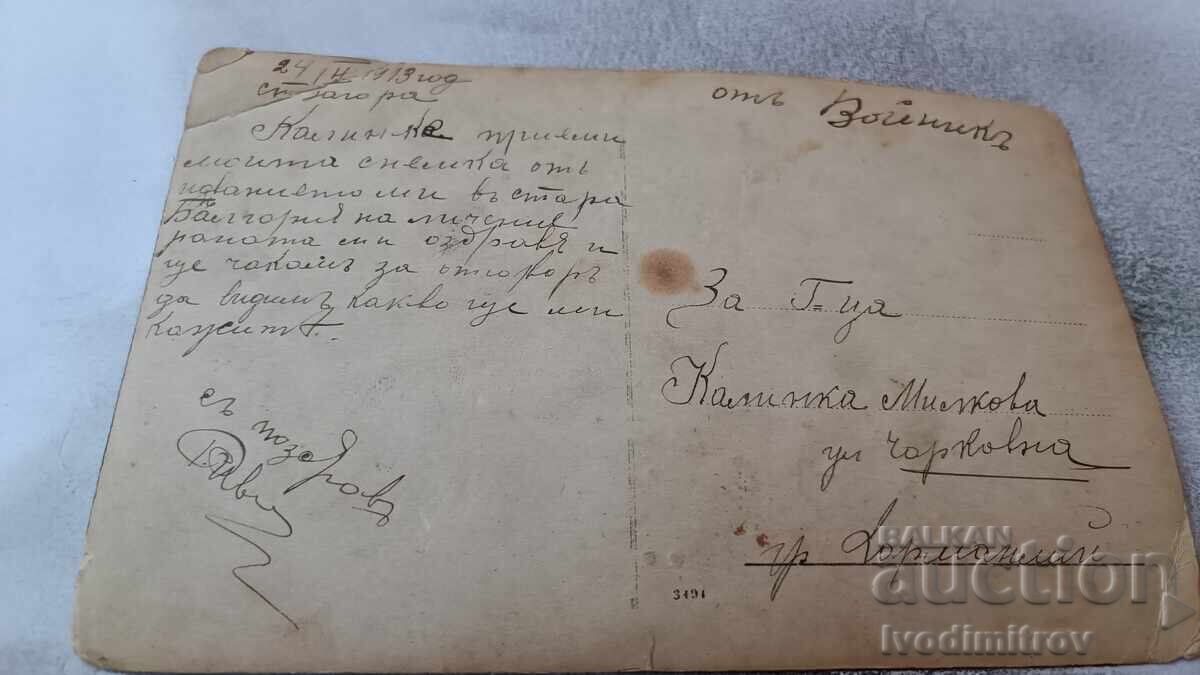 24 IV 1913 год
ст загора
Калинке приями
моита снемка отъ
иванието ми въ стара
Балгория на личение
раната ми оздравя и
ще чакамъ за отговоръ
да видимъ какво ще ми
кажит.
съ
поздравъ
отъ Войникъ
За Г-ца
Калинка Милкова
ул Чорковна
гр Харманлий
3191
BALKAN
auction
Ivodimitrov